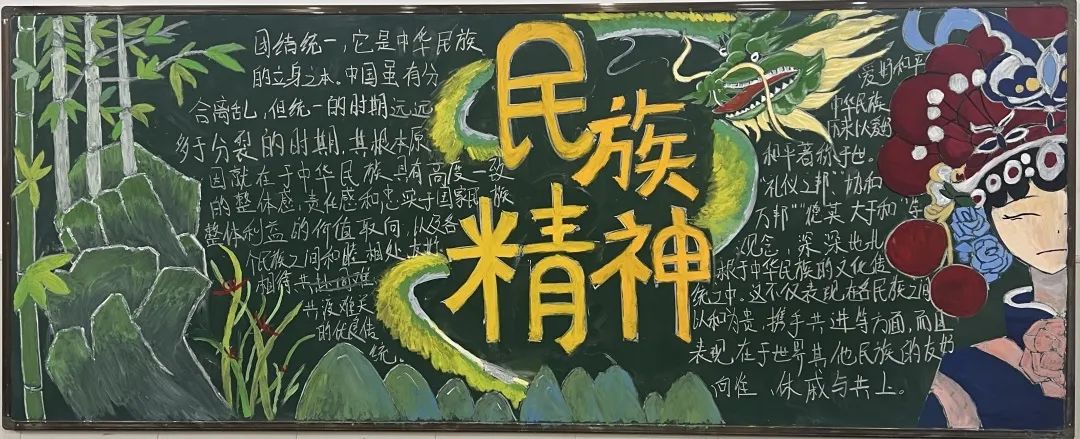 团结统一，它是中华民族
的立身之本。中国虽有分
合离乱，但统一的时期远远
多于分裂的时期。其根本原
因就在于中华民族具有高度一致
的整体感，责任感和忠实于国家民族
整体利益的价值取向，以及各
个民族之间和睦相处
相待共
共渡难关
的优良传
统。
民族
精神
爱好和平
中华民族
历来以爱好
和平著称于世。
"礼仪之邦""协和
万邦""德莫大于和"等
观念，深深地扎
根于中华民族的文化传
统之中。这不仅表现在各民族之间
以和为贵，携手共进等方面，而且
表现在于世界其他民族的友好
向往，休戚与共上。